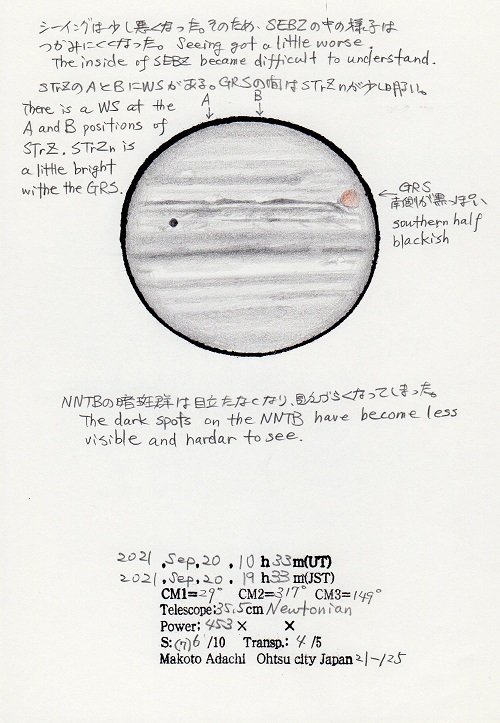 シーイングは少し悪くなった。そのため、SEBZの中の様子は
つかみにくくなった。 Seeing got a little worse.
The inside of SEBZ became difficult to understand.
STrZのAとBにWSがある。GRSの間はSTrZnが少し明い。
There is a WS at the
A and B positions of
STrZ. STrZn is
a little bright
withe the GRS.
A
B
← GRS
南側が黒っぽい
southern half
blackish
NNTBの暗斑群は目立たなくなり、見んづらくなってしまった。
The dark spots on the NNTB have become less
visible and hardar to see.
2021 .Sep.20 .10 h 33 m(UT)
2021 .Sep.20 .19 h 33 m(JST)
CM1=29° CM2=317° CM3=149°
Telescope:35.5cm Newtonian
Power: 453 × ×
S:(7)6 /10 Transp.: 4 /5
Makoto Adachi Ohtsu city Japan 21-125